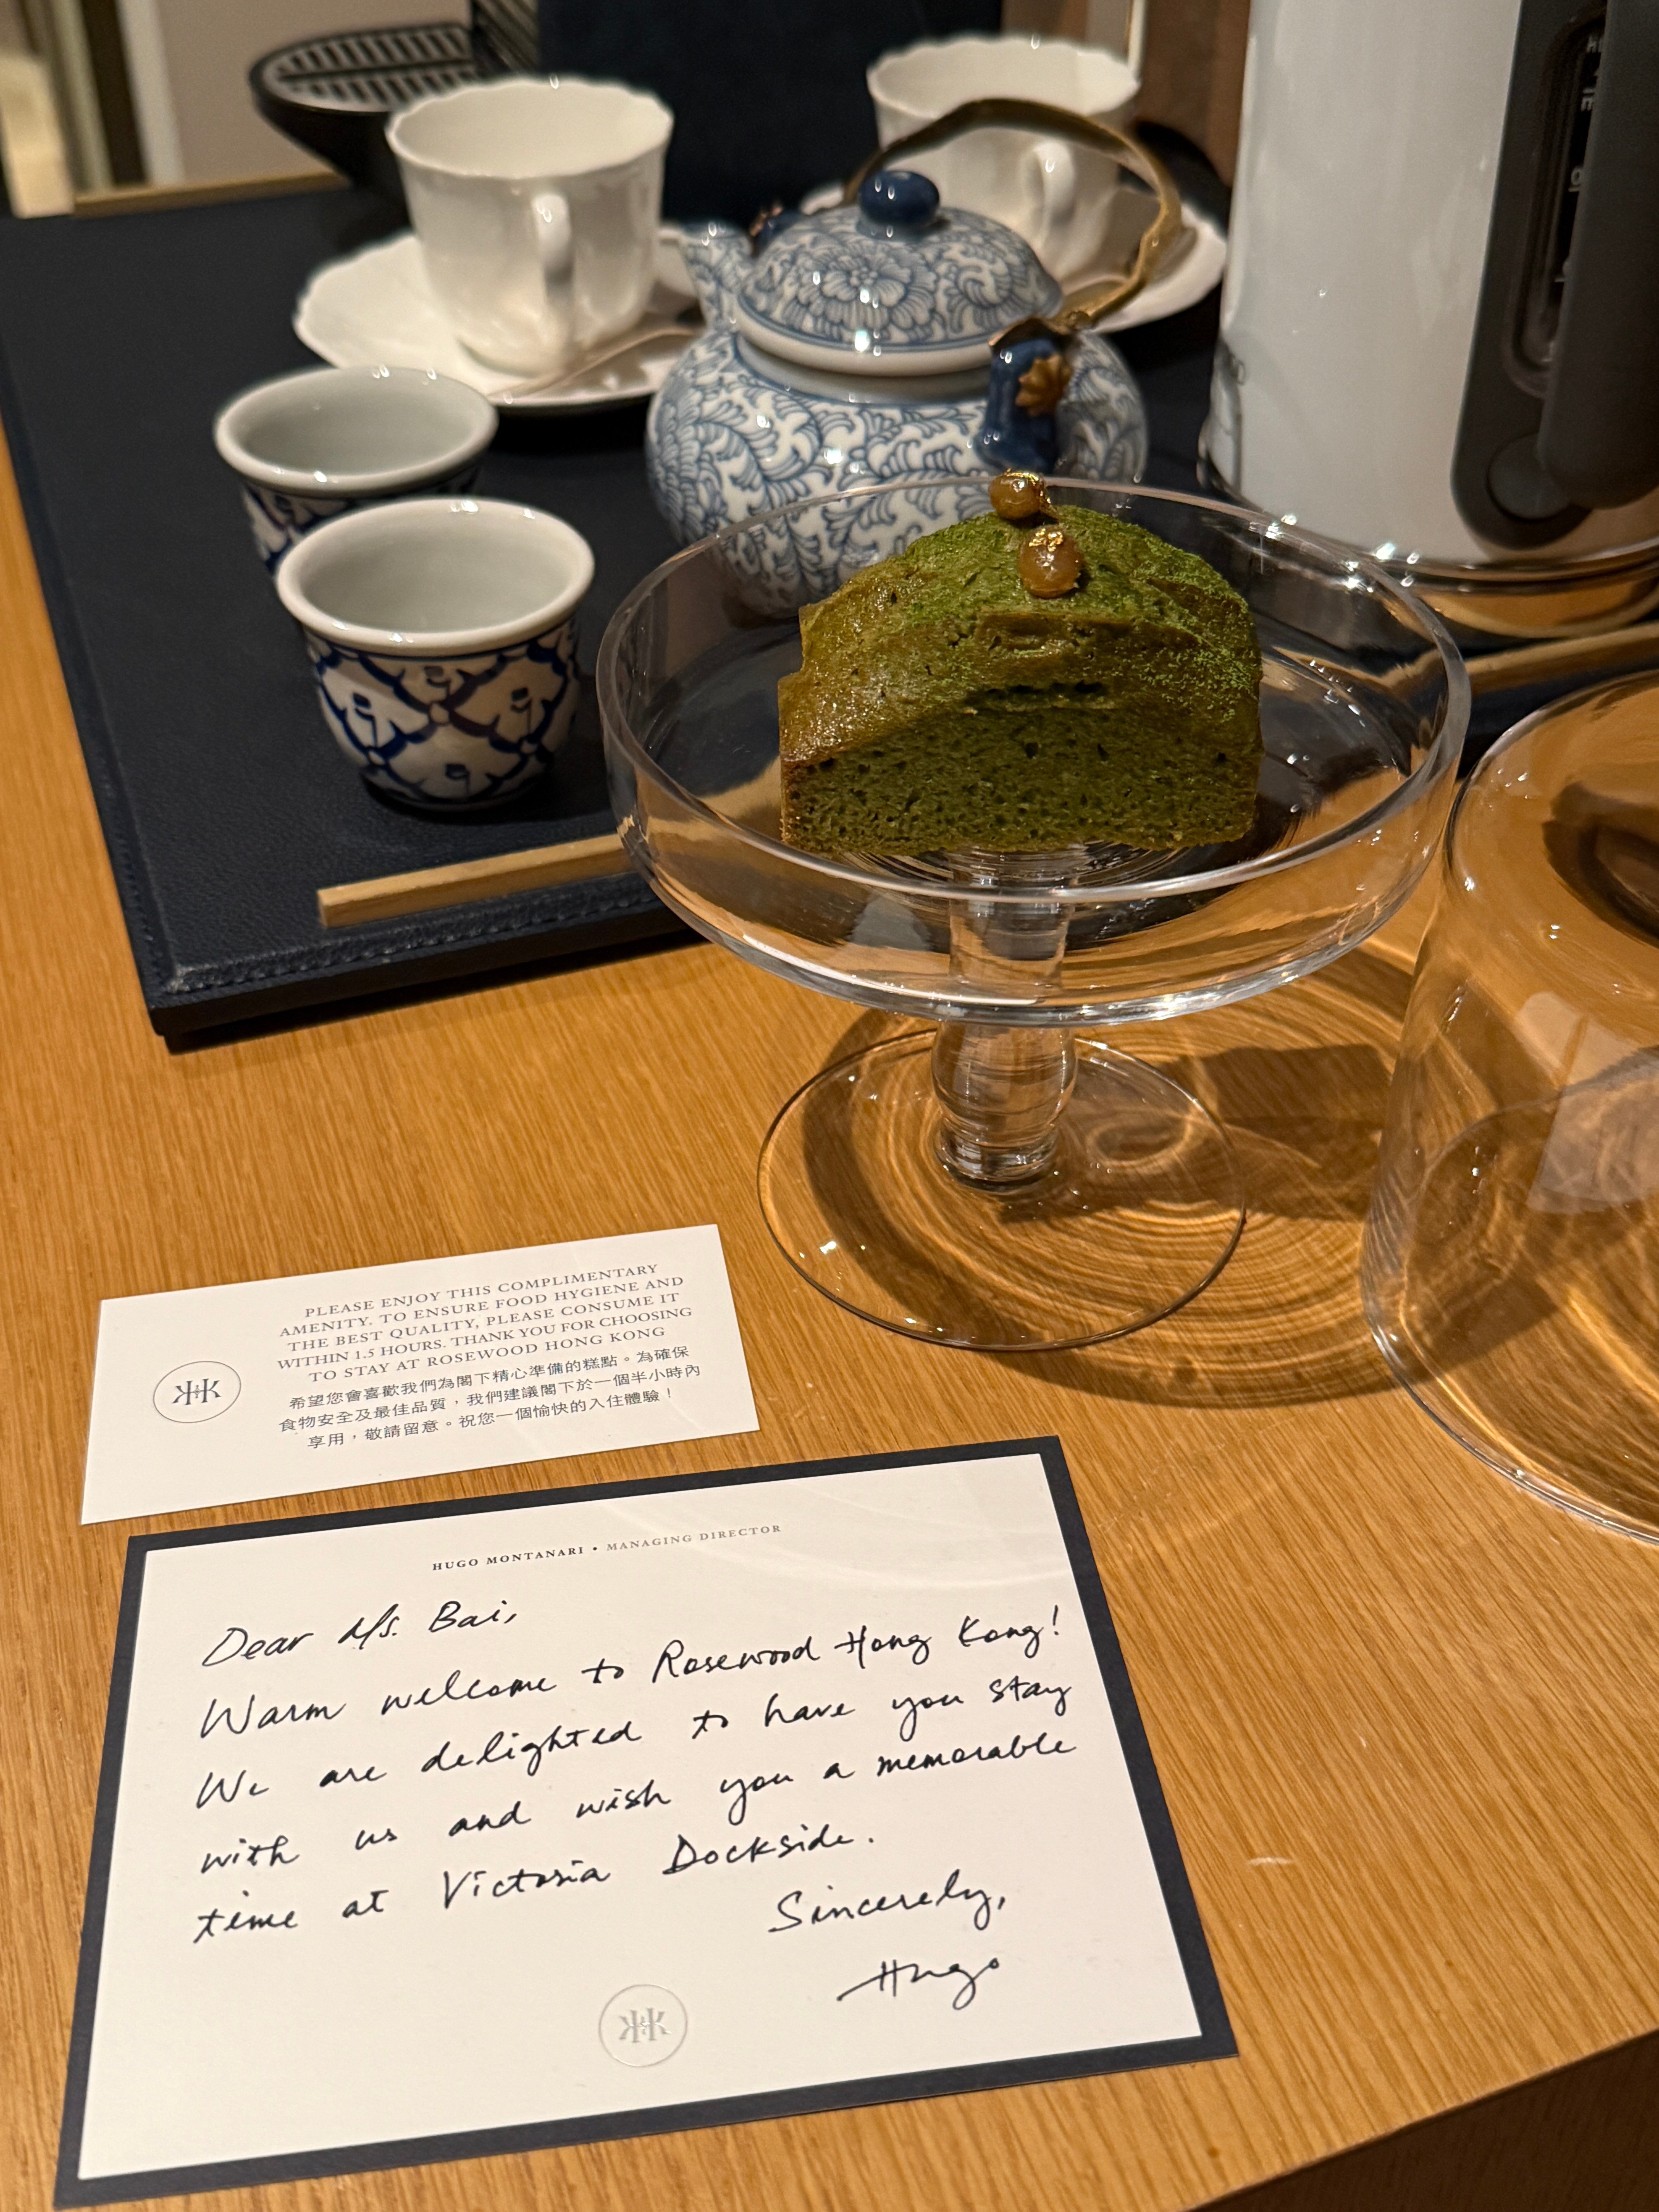 PLEASE ENJOY THIS COMPLIMENTARY
AMENITY. TO ENSURE FOOD HYGIENE AND
THE BEST QUALITY, PLEASE CONSUME IT
WITHIN 1.5 HOURS. THANK YOU FOR CHOOSING
TO STAY AT ROSEWOOD HONG KONG
希望您會喜歡我們為閣下精心準備的糕點。為確保
食物安全及最佳品質，我們建議閣下於一個半小時內
享用，敬請留意。祝您一個愉快的入住體驗！
HUGO MONTANARI • MANAGING DIRECTOR
Dear Ms. Bai,
Warm welcome to Rosewood Hong Kong!
We are delighted to have you stay
with us and wish you a memorable
time at Victoria Dockside.
Sincerely,
Hugo